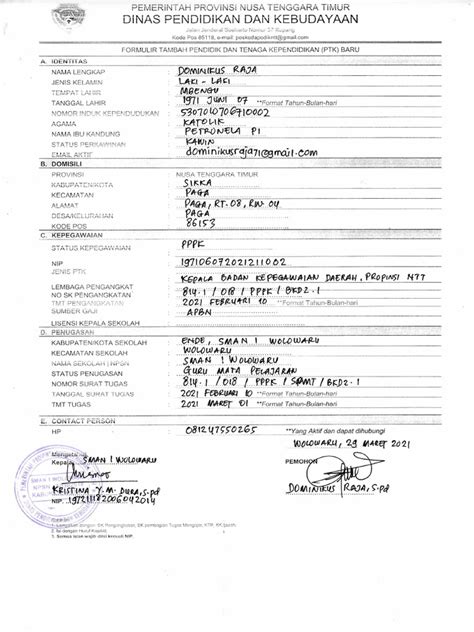 PEMERINTAH PROVINSI NUSA TENGGARA TIMUR
DINAS PENDIDIKAN DAN KEBUDAYAAN
Jalan Jenderal Soeharto Nomor 57 Kupang
Kode Pos 85119, e-mail
FORMULIR TAMBAH PENDIDIK DAN TENAGA KEPENDIDIKAN (PTK) BARU
A. IDENTITAS
NAMA LENGKAP : DOMINIKUS RAJA
JENIS KELAMIN : LAKI - LAKI
TEMPAT LAHIR : MBENGU
TANGGAL LAHIR : 1971 JUNI 07 **Format Tahun-Bulan-hari
NOMOR INDUK KEPENDUDUKAN : 5307010706710002
AGAMA : KATOLIK
NAMA IBU KANDUNG : PETRONELA PI
STATUS PERKAWINAN : KAWIN
EMAIL AKTIF : dominikusraja71@gmail.com
B. DOMISILI
PROVINSI : NUSA TENGGARA TIMUR
KABUPATEN/KOTA : SIKKA
KECAMATAN : PAGA
ALAMAT : PAGA, RT.08, RW 04
DESA/KELURAHAN : PAGA
KODE POS : 86153
C. KEPEGAWAIAN
STATUS KEPEGAWAIAN : PPPK
NIP : 197106072021211002
JENIS PTK :
LEMBAGA PENGANGKAT : KEPALA BADAN KEPEGAWAIAN DAERAH, PROPINSI NTT
NO SK PENGANGKATAN : 814.1 / 018 / PPPK / BKD2.1
TMT PENGANGKATAN : 2021 FEBRUARI 10 **Format Tahun-Bulan-hari
SUMBER GAJI : APBN
LISENSI KEPALA SEKOLAH :
D. PENUGASAN
KABUPATEN/KOTA SEKOLAH : ENDE, SMAN 1 WOLOWARU
KECAMATAN SEKOLAH : WOLOWARU
NAMA SEKOLAH / NPSN : SMAN 1 WOLOWARU
STATUS PENUGASAN : GURU MATA PELAJARAN
NOMOR SURAT TUGAS : 814.1 / 018 / PPPK / SPMT / BKD2.1
TANGGAL SURAT TUGAS : 2021 FEBRUARI 10 **Format Tahun-Bulan-hari
TMT TUGAS : 2021 MARET 01 **Format Tahun-Bulan-hari
E. CONTACT PERSON
HP : 081247550265 **Yang Aktif dan dapat dihubungi
WOLOWARU, 29 MARET 2021
Mengetahui
Kepala SMAN 1 WOLOWARU
PEMOHON
KRISTINA Y. M. DURA, S.Pd
NIP. 197211182006042014
DOMINIKUS RAJA, S.Pd